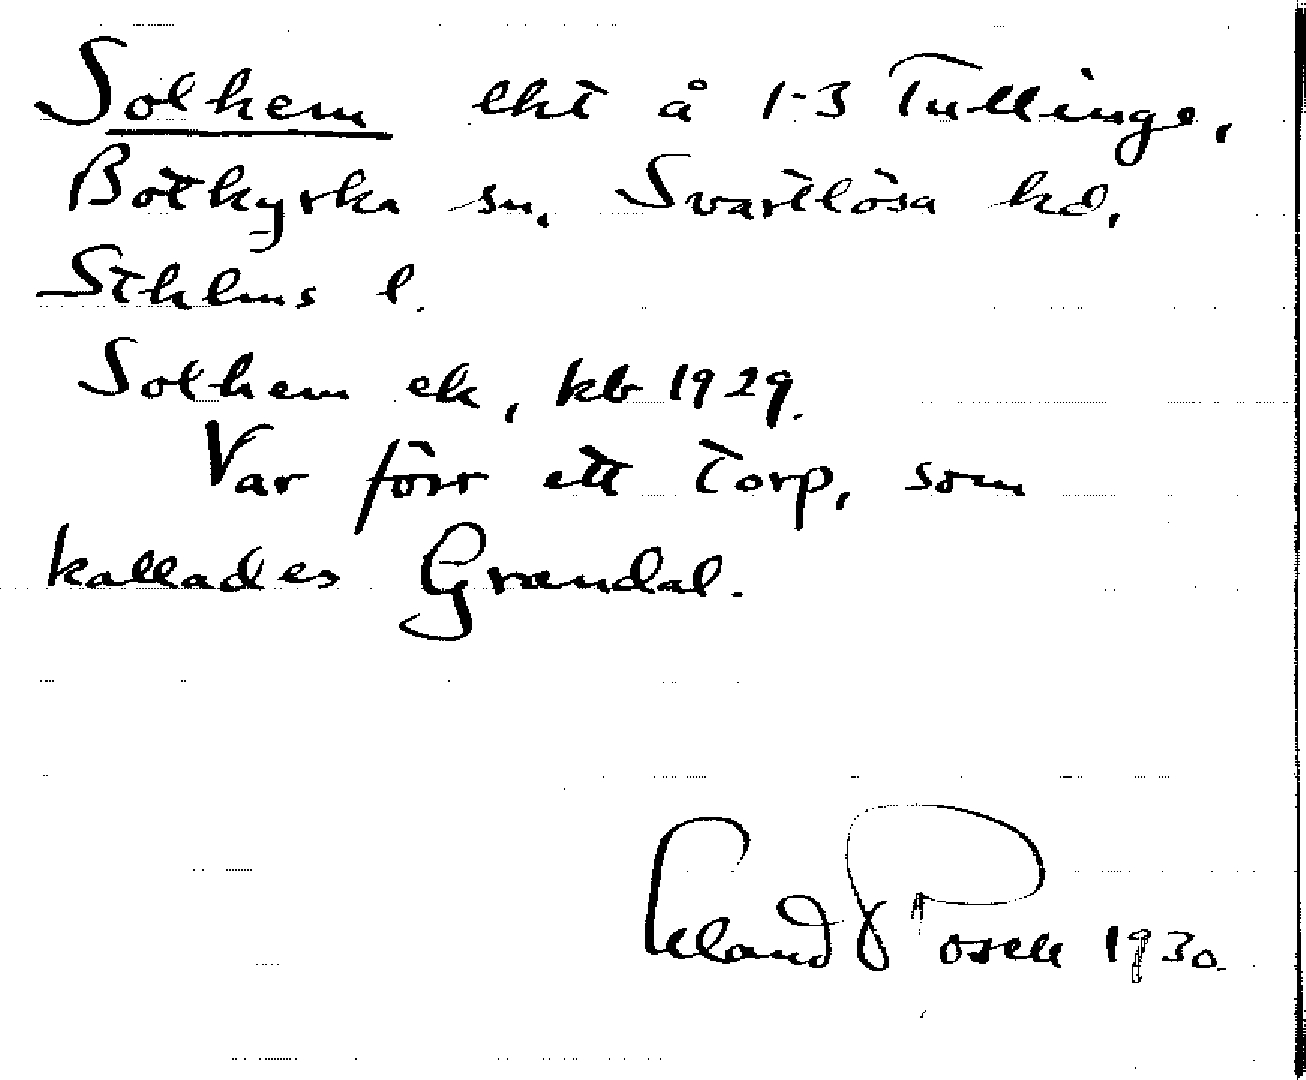 Solhem lht å 1-3 Tullinge,
Botkyrka sn, Svartlösa hd,
Sthlms l.
Solhem ek, kb 1929.
Var förr ett torp, som
kallades Grandal.
Posse 1930